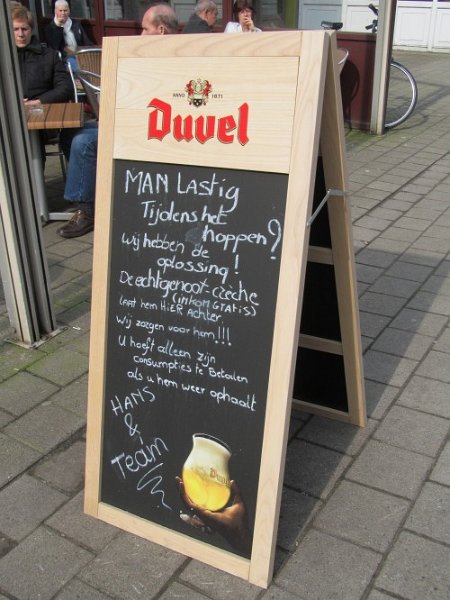 ANNO 1871
Duvel
MAN Lastig
Tijdens het
shoppen?
Wij hebben de
oplossing!
De echtgenoot-crèche
(inkom GRATIS)
Laat hem HIER Achter
Wij zorgen voor hem!!!
U hoeft alleen zijn
consumpties te Betalen
als u hem weer ophaalt
HANS
&
Team
Duvel